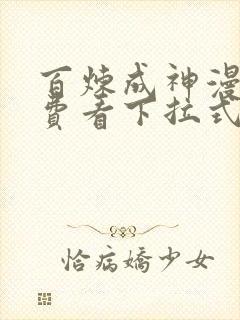 百炼成神漫
费看下拉式
恰病娇少女